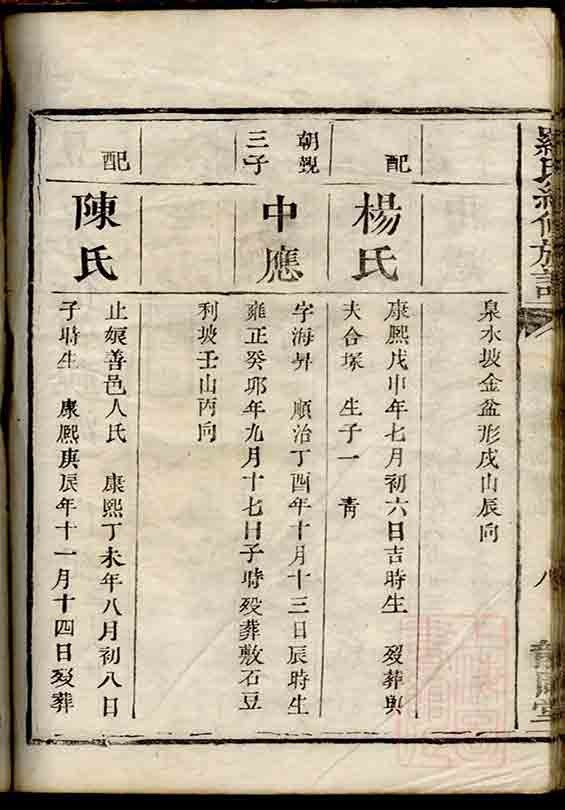 羅氏續修族譜
八
泉水坡金盆形戌山辰向
配
楊氏
康熙戊申年七月初六日吉時生 歿葬與
夫合塚 生子一 靑
朝覲
三子
中應
字海昇 順治丁酉年十月十三日辰時生
雍正癸卯年九月十七日子時歿葬敷石豆
利坡壬山丙向
配
陳氏
止娘善邑人氏 康熙丁未年八月初八日
子時生 康熙庚辰年十一月十四日歿葬